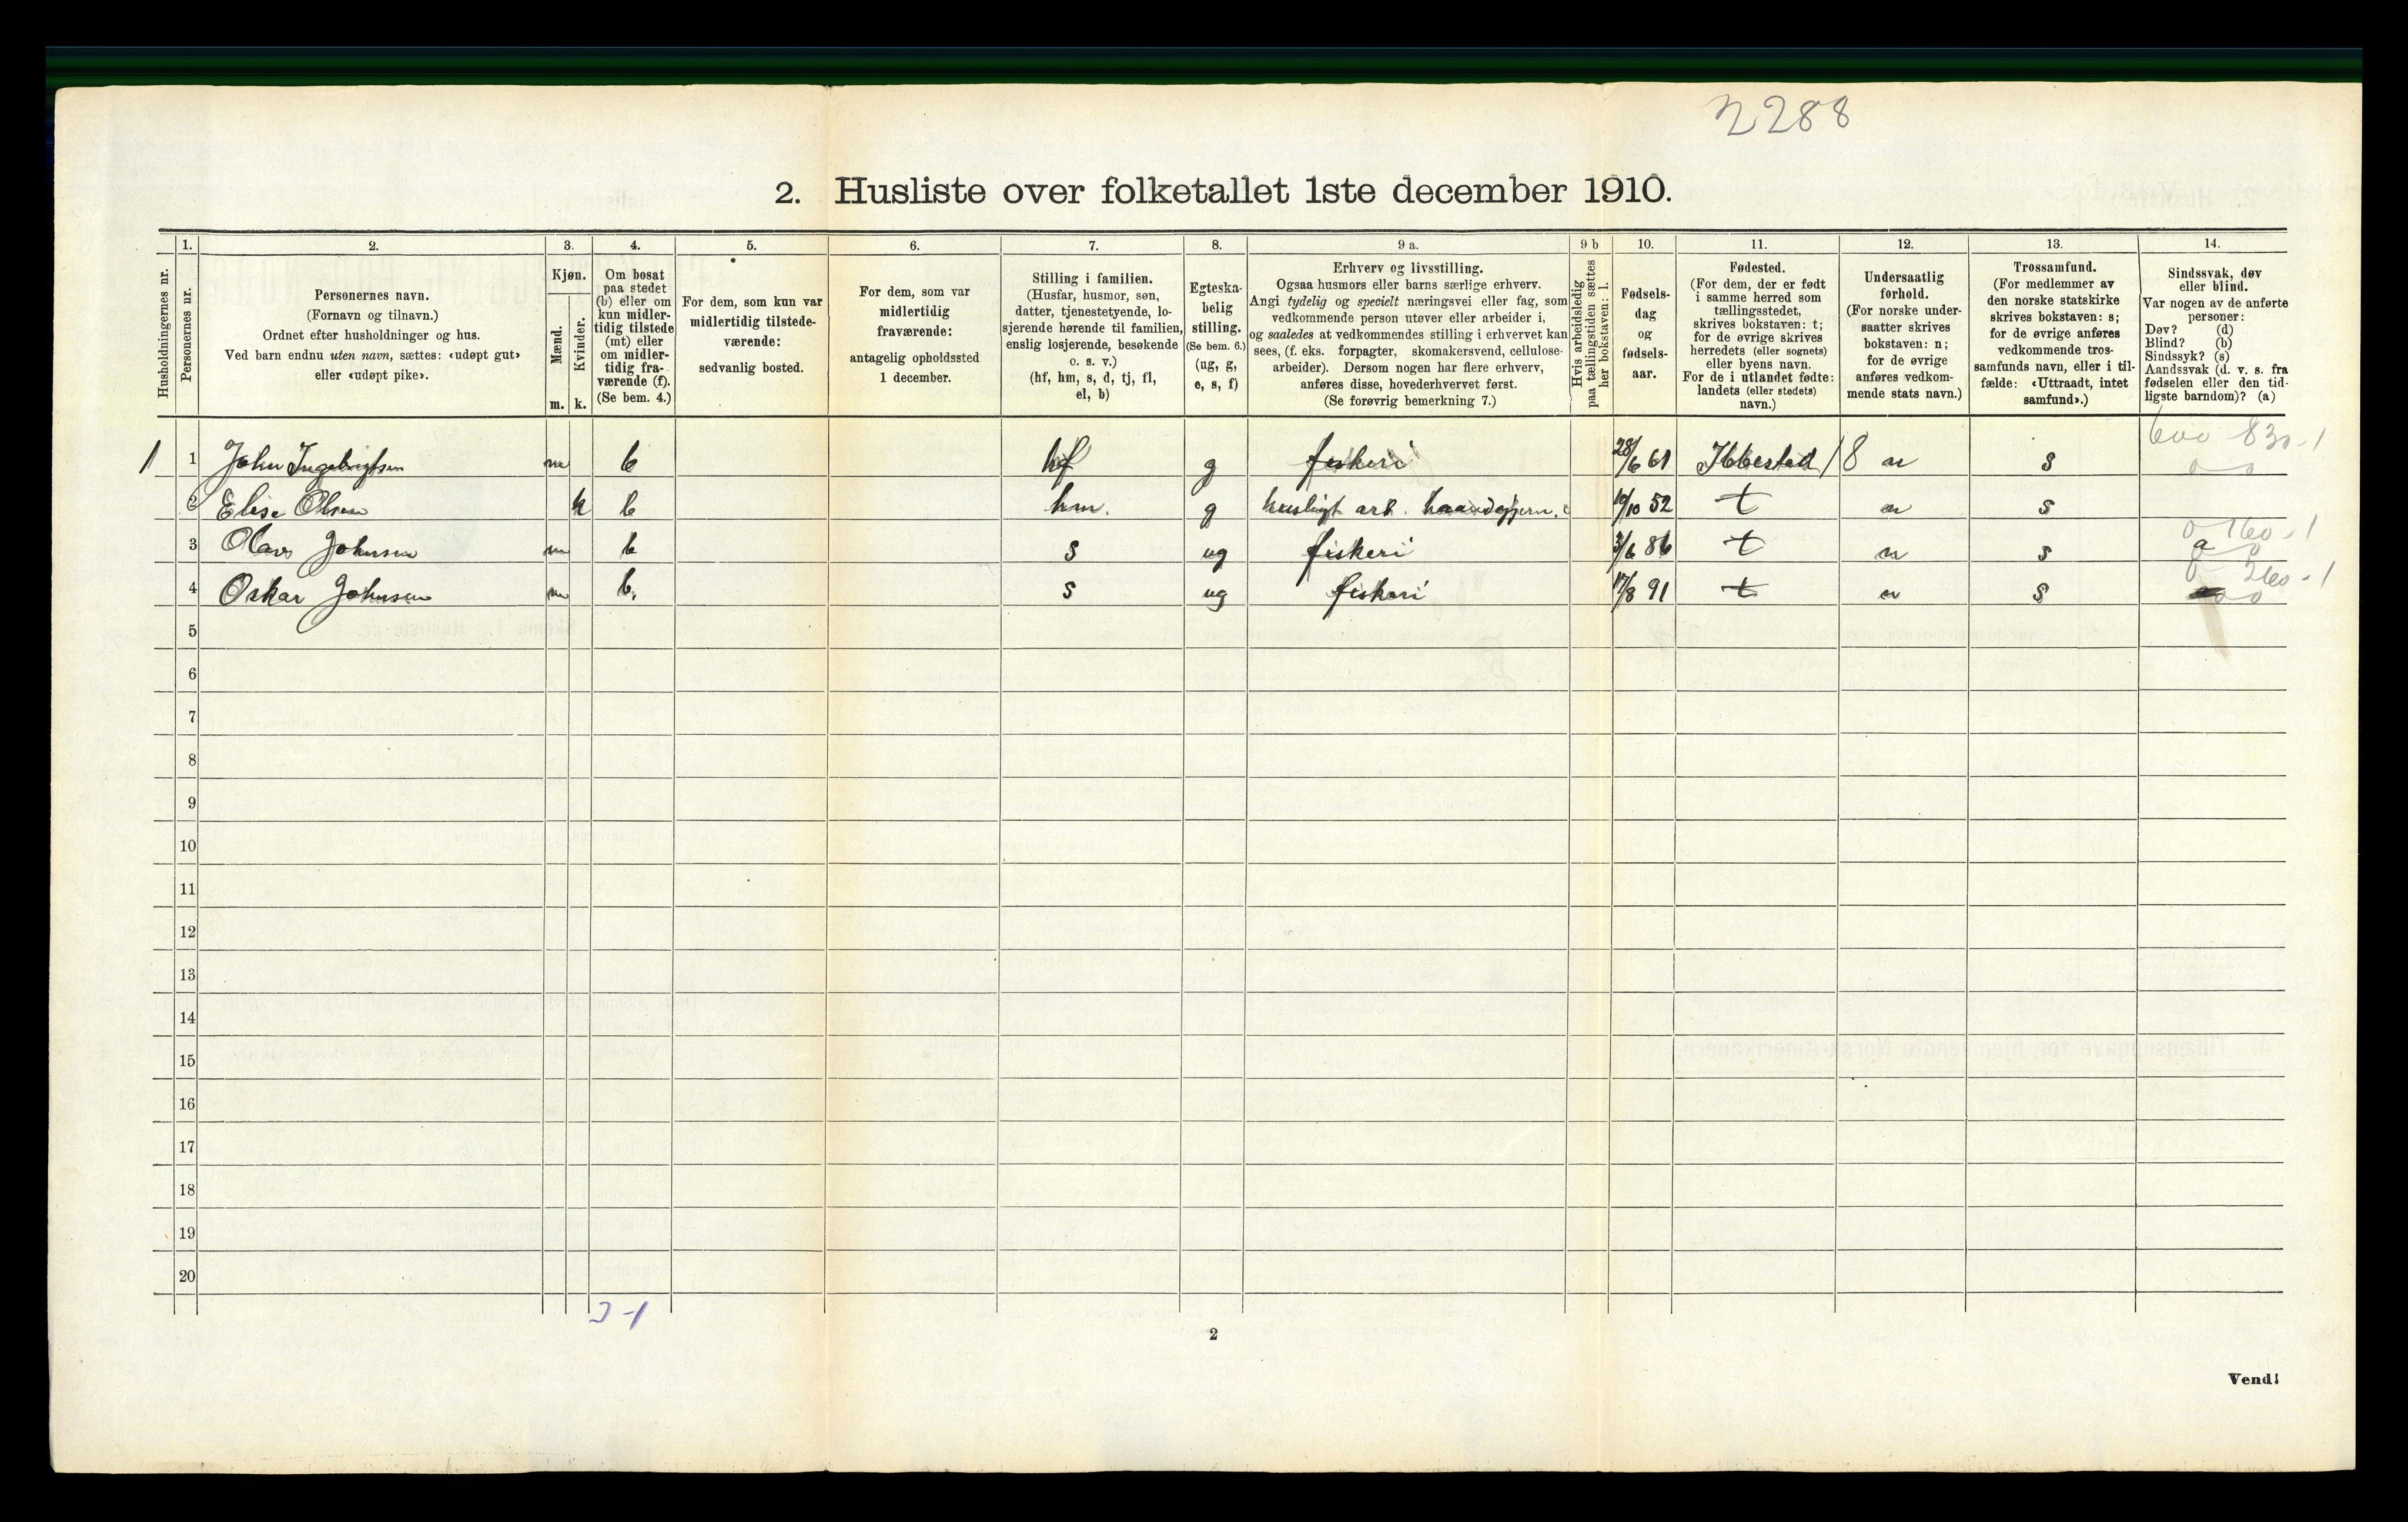 2288
2. Husliste over folketallet 1ste december 1910.
1. 2. 3. 4. 5. 6. 7. 8. 9 a. 9 b 10. 11. 12. 13. 14.
Husholdningernes nr.
Personernes nr.
Personernes navn.
(Fornavn og tilnavn.)
Ordnet efter husholdninger og hus.
Ved barn endnu uten navn, sættes: «udøpt gut»
eller «udøpt pike».
Kjøn.
Mænd.
Kvinder.
m. k.
Om bosat
paa stedet
(b) eller om
kun midler-
tidig tilstede
(mt) eller
om midler-
tidig fra-
værende (f).
(Se bem. 4.)
For dem, som kun var
midlertidig tilstede-
værende:
sedvanlig bosted.
For dem, som var
midlertidig
fraværende:
antagelig opholdssted
1 december.
Stilling i familien.
(Husfar, husmor, søn,
datter, tjenestetyende, lo-
sjerende hørende til familien,
enslig losjerende, besøkende
o. s. v.)
(hf, hm, s, d, tj, fl,
el, b)
Egteska-
belig
stilling.
(Se bem. 6.)
(ug, g,
e, s, f)
Erhverv og livsstilling.
Ogsaa husmors eller barns særlige erhverv.
Angi tydelig og specielt næringsvei eller fag, som
vedkommende person utøver eller arbeider i,
og saaledes at vedkommendes stilling i erhvervet kan
sees, (f. eks. forpagter, skomakersvend, cellulose-
arbeider). Dersom nogen har flere erhverv,
anføres disse, hovederhvervet først.
(Se forøvrig bemerkning 7.)
Hvis arbeidsledig
paa tællingstiden sættes
her bokstaven: l.
Fødsels-
dag
og
fødsels-
aar.
Fødested.
(For dem, der er født
i samme herred som
tællingsstedet,
skrives bokstaven: t;
for de øvrige skrives
herredets (eller sognets)
eller byens navn.
For de i utlandet fødte:
landets (eller stedets)
navn.)
Undersaatlig
forhold.
(For norske under-
saatter skrives
bokstaven: n;
for de øvrige
anføres vedkom-
mende stats navn.)
Trossamfund.
(For medlemmer av
den norske statskirke
skrives bokstaven: s;
for de øvrige anføres
vedkommende tros-
samfunds navn, eller i til-
fælde: «Uttraadt, intet
samfund».)
Sindssvak, døv
eller blind.
Var nogen av de anførte
personer:
Døv? (d)
Blind? (b)
Sindssyk? (s)
Aandssvak (d. v. s. fra
fødselen eller den tid-
ligste barndom)? (a)
600 830-1
1 1 John Ingebrigtsen m b hf g fiskeri 28/6 61 Ibbestad 18 n s 0 0
2 Elise Olsen k b hm. g husligt arb. haandgjern. 10/10 52 t n s
0 160-1
3 Olav Johnsen m b s ug fiskeri 3/6 86 t n s a
0 260-1
4 Oskar Johnsen m b. s ug fiskeri 17/8 91 t n s 0 0
5
6
7
8
9
10
11
12
13
14
15
16
17
18
19
20
3-1
2
Vend!